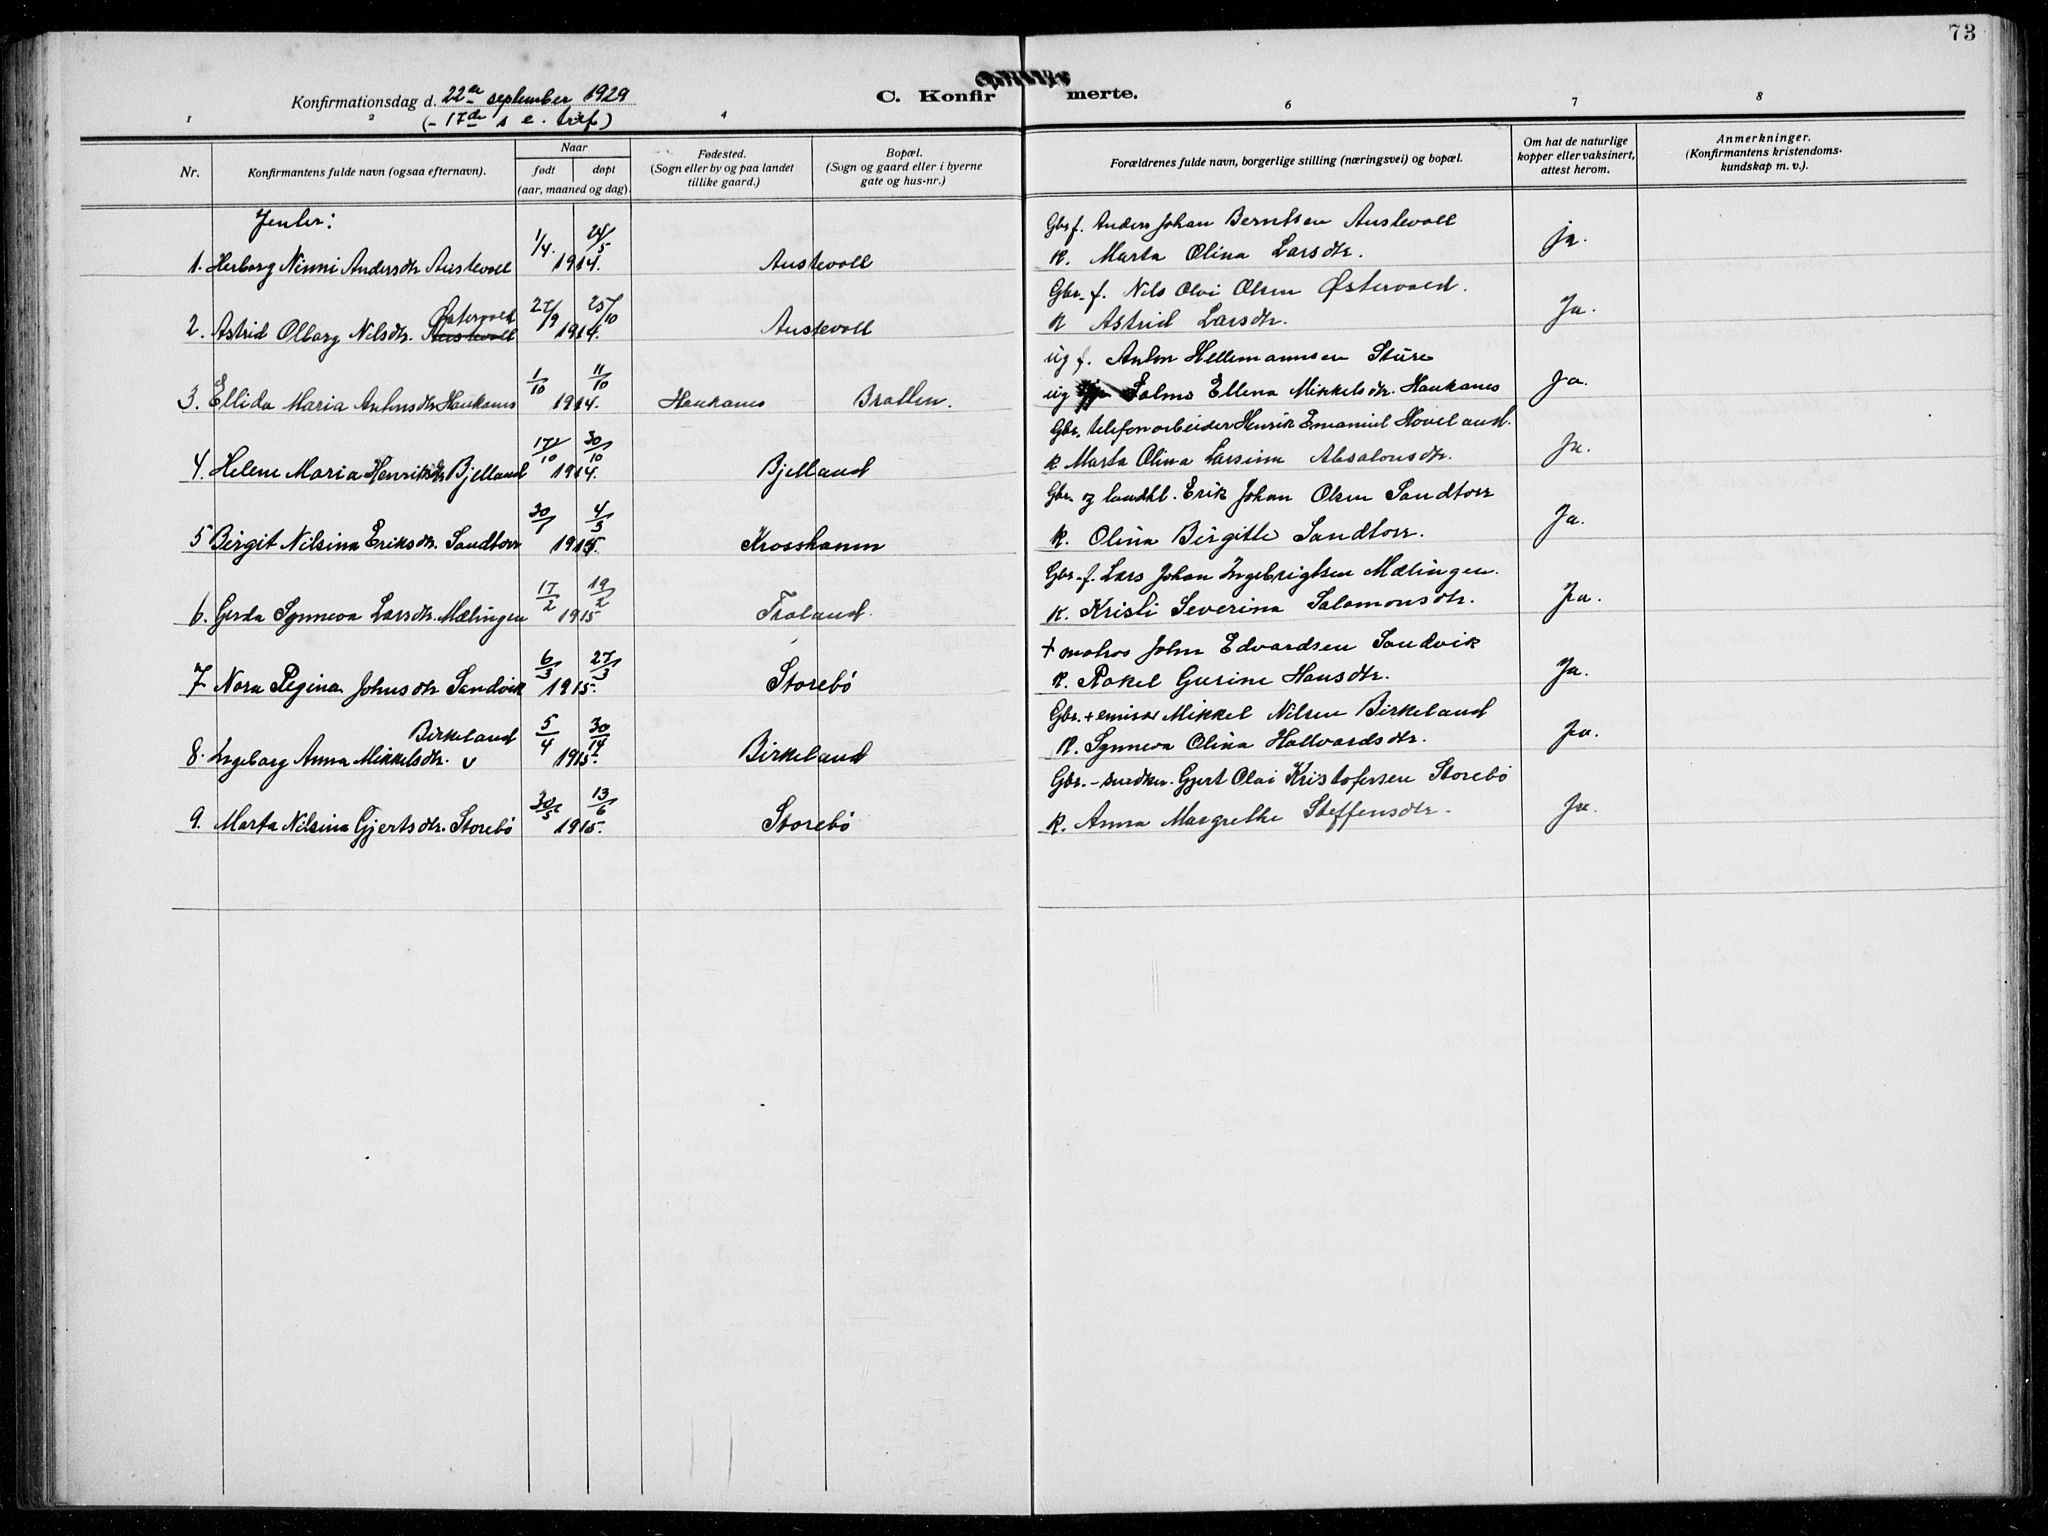 73
Konfirmationsdag d. 22de september 1929
(- 17de s e. tref)
C. Konfirmerte.
1 2 4 6 7 8
Nr.
Konfirmantens fulde navn (ogsaa efternavn).
Naar
født døpt
(aar, maaned og dag).
Fødested.
(Sogn eller by og paa landet
tillike gaard.)
Bopæl.
(Sogn og gaard eller i byerne
gate og hus-nr.)
Forældrenes fulde navn, borgerlige stilling (næringsvei) og bopæl.
Om hat de naturlige
kopper eller vaksinert,
attest herom.
Anmerkninger.
(Konfirmantens kristendoms-
kundskap m. v.).
Jenter:
1/4. 24/5 Gbr f. Anders Johan Berntsen Austevoll
1. Herborg Ninni Andersdtr Austevoll 1914. Austevoll K. Marta Olina Larsdtr. ja.
Østervold 27/9 25/10 Gbr. f. Nils Olai Olsen Østervold.
2. Astrid Olborg Nilsdtr. Austevoll 1914. Austevoll K Astrid Larsdtr. Ja.
1/10 11/10 ug f. Anton Hellemannsen Sture
3. Ellida Maria Antonsdtr Haukanes 1914. Haukanes Bratten. ug Salme Ellena Mikkelsdtr. Haukanes Ja.
17/10 30/10 Gbr. telefonarbeider Henrik Emanuel Hoveland.
4. Helene Maria Henriksdtr Bjelland 1914. Bjelland K Marta Olina Larsina Absalonsdtr. Ja.
30/1 4/3 Gbr. og landhl. Erik Johan Olsen Sandtorv
5 Birgit Nilsina Eriksdtr. Sandtorv 1915. Krosshamn K. Olina Birgitte Sandtorv. Ja.
17/2 19/2 Gbr. f. Lars Johan Ingebrigtsen Mælingen.
6. Gerda Synneva Larsdtr. Mælingen 1915 Troland. K. Kristi Severina Salomonsdtr. Ja.
6/3 27/3 + matros John Edvardsen Sandvik
7 Nora Regina Johnsdtr Sandvik 1915. Storebø K. Rakel Gurine Hansdtr. Ja.
Birkeland 5/4 30/4 Gbr. + emisær Mikkel Nilsen Birkeland
8. Ingeborg Anna Mikkelsdtr. v 1915. Birkeland K. Synneva Olina Hallvardsdtr. Ja.
30/5 13/6 Gbr. - snedker. Gjert Olai Kristofersen Storebø
9. Marta Nilsina Gjertsdtr. Storebø 1915. Storebø K. Anna Margrethe Steffensdtr. Ja.